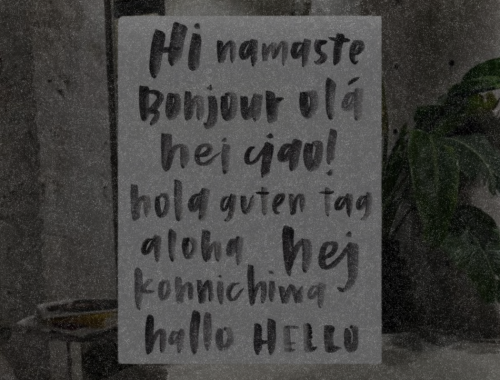 Hi namaste
Bonjour olá
hei ciao!
hola guten tag
aloha hej
konnichiwa
hallo HELLO